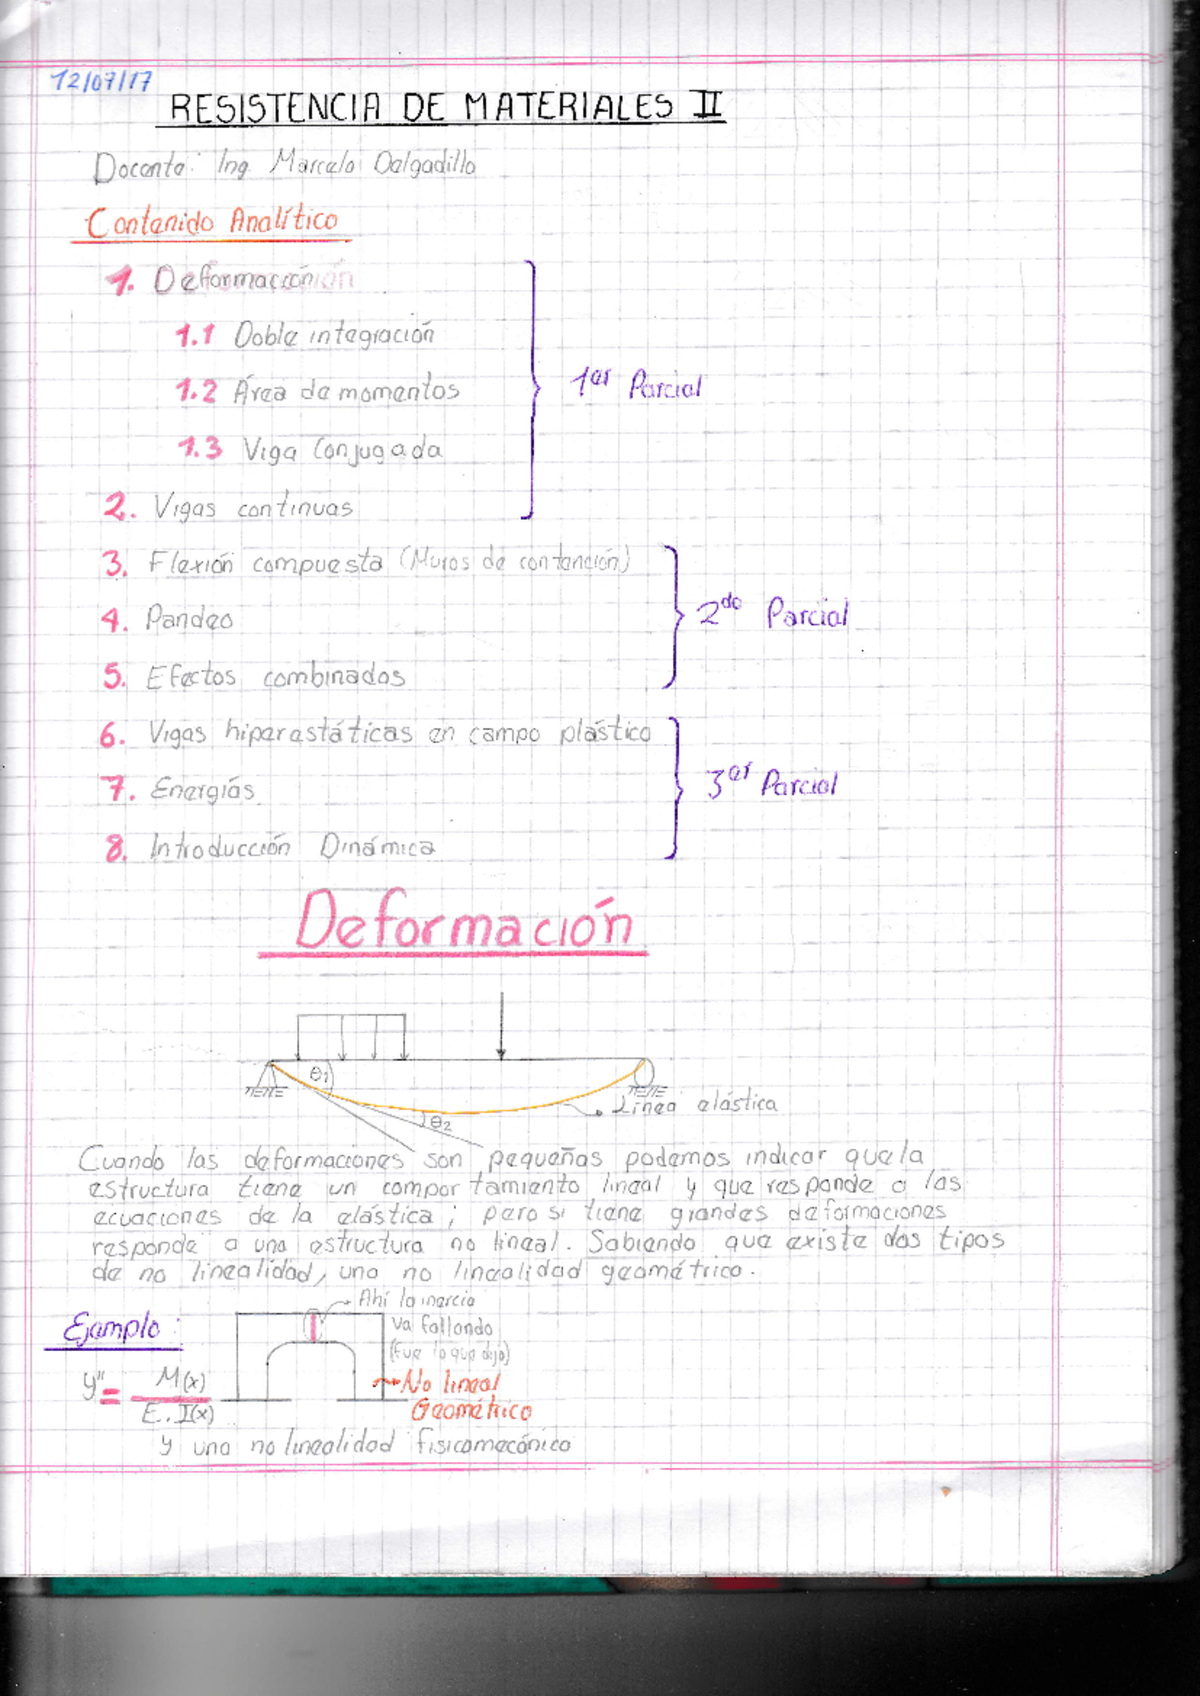 12/07/17
RESISTENCIA DE MATERIALES II
Docente: Ing Marcelo Delgadillo
Contenido Analítico
1. Deformación
1.1 Doble integración
1.2 Área de momentos
1.3 Viga Conjugada
1er Parcial
2. Vigas continuas
3. Flexión compuesta (Muros de contención)
4. Pandeo
2do Parcial
5. Efectos combinados
6. Vigas hiperestáticas en campo plástico
7. Energías
3er Parcial
8. Introducción Dinámica
Deformación
θ1
θ2
Línea elástica
Cuando las deformaciones son pequeñas podemos indicar que la
estructura tiene un comportamiento lineal y que responde a las
ecuaciones de la elástica; pero si tiene grandes deformaciones
responde a una estructura no lineal. Sabiendo que existe dos tipos
de no linealidad, una no linealidad geométrica.
Ahí la inercia
va fallando
(Fue lo que dijo)
Ejemplo:
No lineal
Geométrico
y'' = M(x)
E. I(x)
y una no linealidad fisicomecánica